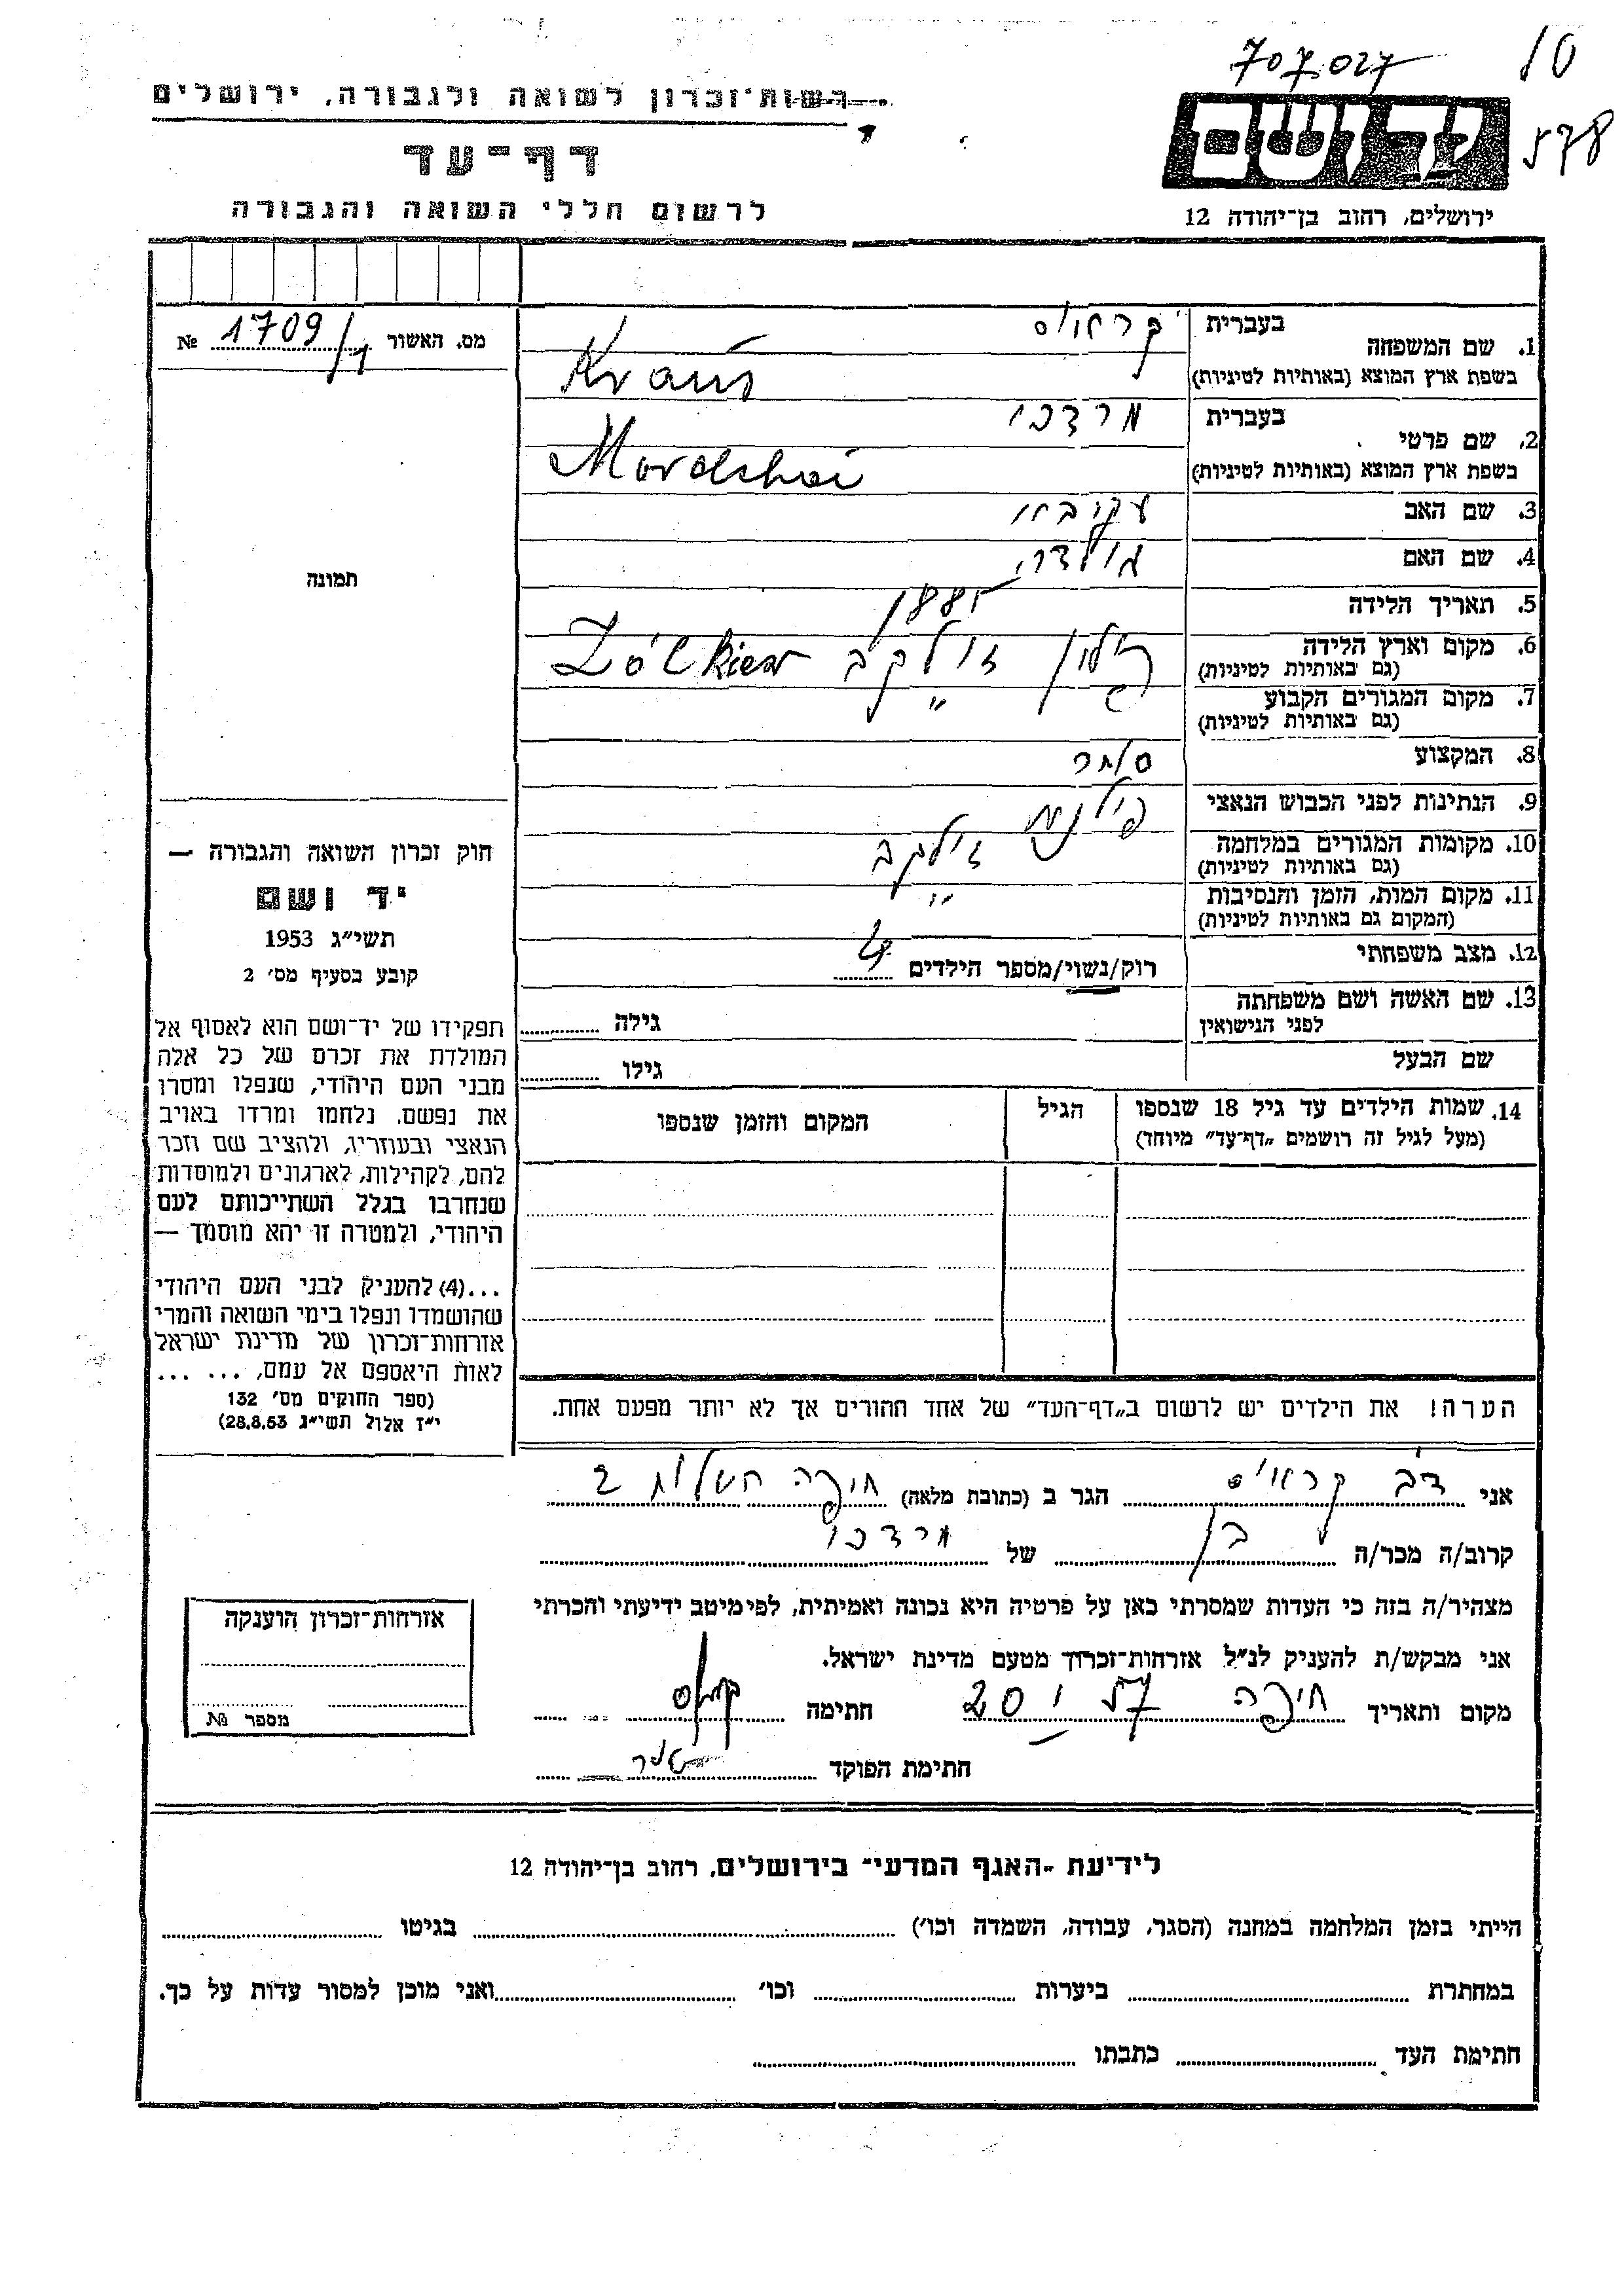 707027
10
578
רשות־זכרון לשואה ולגבורה, ירושלים
דף־עד
לרשום חללי השואה והגבורה
ירושלים, רחוב בן־יהודה 12
מס. האשור 1709/1 №
תמונה
בעברית קראוס
1. שם המשפחה
בשפת ארץ המוצא (באותיות לטיניות) Kraus
בעברית מרדכי
2. שם פרטי
בשפת ארץ המוצא (באותיות לטיניות) Mordchai
3. שם האב עקיבא
4. שם האם גולדה
5. תאריך הלידה 1885
6. מקום וארץ הלידה פולין זולקב Żółkiew
(גם באותיות לטיניות)
7. מקום המגורים הקבוע "
(גם באותיות לטיניות)
8. המקצוע סוחר
9. הנתינות לפני הכבוש הנאצי פולנית
10. מקומות המגורים במלחמה זולקב
(גם באותיות לטיניות)
11. מקום המות, הזמן והנסיבות "
(המקום גם באותיות לטיניות)
12. מצב משפחתי רוק/נשוי/מספר הילדים 4
13. שם האשה ושם משפחתה
לפני הנישואין גילה
שם הבעל גילו
14. שמות הילדים עד גיל 18 שנספו הגיל המקום והזמן שנספו
(מעל לגיל זה רושמים "דף־עד" מיוחד)
חוק זכרון השואה והגבורה —
יד ושם
תשי"ג 1953
קובע בסעיף מס' 2
תפקידו של יד־ושם הוא לאסוף אל
המולדת את זכרם של כל אלה
מבני העם היהודי, שנפלו ומסרו
את נפשם, נלחמו ומרדו באויב
הנאצי ובעוזריו, ולהציב שם וזכר
להם, לקהילות, לארגונים ולמוסדות
שנחרבו בגלל השתייכותם לעם
היהודי, ולמטרה זו יהא מוסמך —
...(4) להעניק לבני העם היהודי
שהושמדו ונפלו בימי השואה והמרי
אזרחות־זכרון של מדינת ישראל
לאות היאספם אל עמם, ... ...
(ספר החוקים מס' 132
י"ז אלול תשי"ג 28.8.53)
הערה! את הילדים יש לרשום ב"דף־העד" של אחד ההורים אך לא יותר מפעם אחת.
אני דב קראוס הגר ב (כתובת מלאה) חיפה השלוח 2
קרוב/ה מכר/ה בן של מרדכי
מצהיר/ה בזה כי העדות שמסרתי כאן על פרטיה היא נכונה ואמיתית, לפי מיטב ידיעתי והכרתי
אני מבקש/ת להעניק לנ"ל אזרחות־זכרון מטעם מדינת ישראל.
מקום ותאריך חיפה 20 I 57 חתימה קראוס
חתימת הפוקד
אזרחות־זכרון הוענקה
מספר №
לידיעת "האגף המדעי" בירושלים, רחוב בן־יהודה 12
הייתי בזמן המלחמה במחנה (הסגר, עבודה, השמדה וכו') בגיטו
במחתרת ביערות וכו' ואני מוכן למסור עדות על כך.
חתימת העד כתבתו